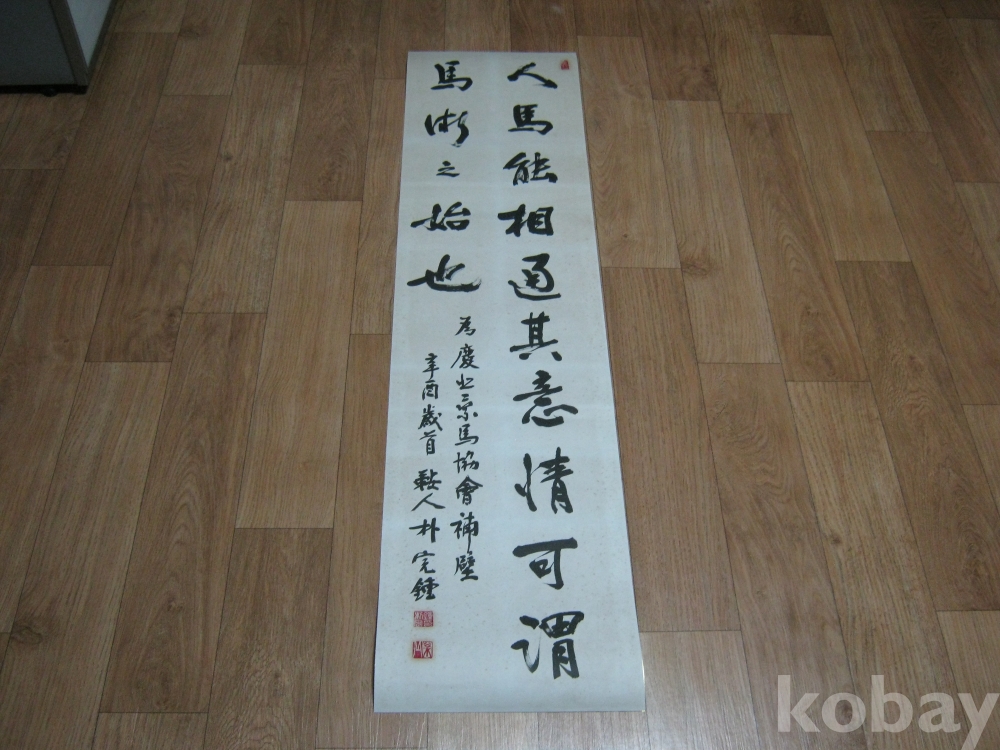 人馬能相通其意情可謂
馬術之始也
為慶北乗馬協會補壁
辛酉歲首 鞍人 朴完鍾
kobay